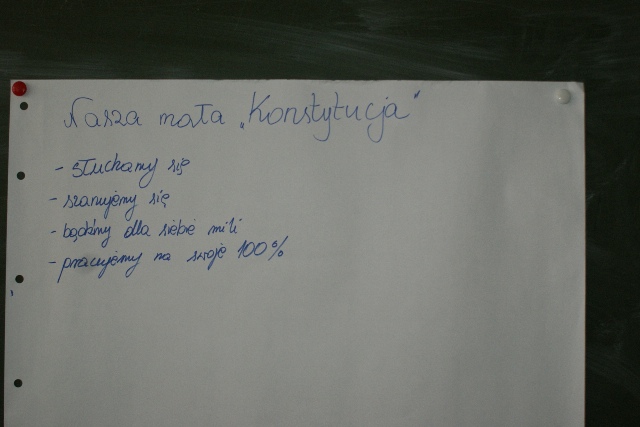 Nasza mała „Konstytucja"
- słuchamy się
- szanujemy się
- bądźmy dla siebie mili
- pracujemy na swoje 100%